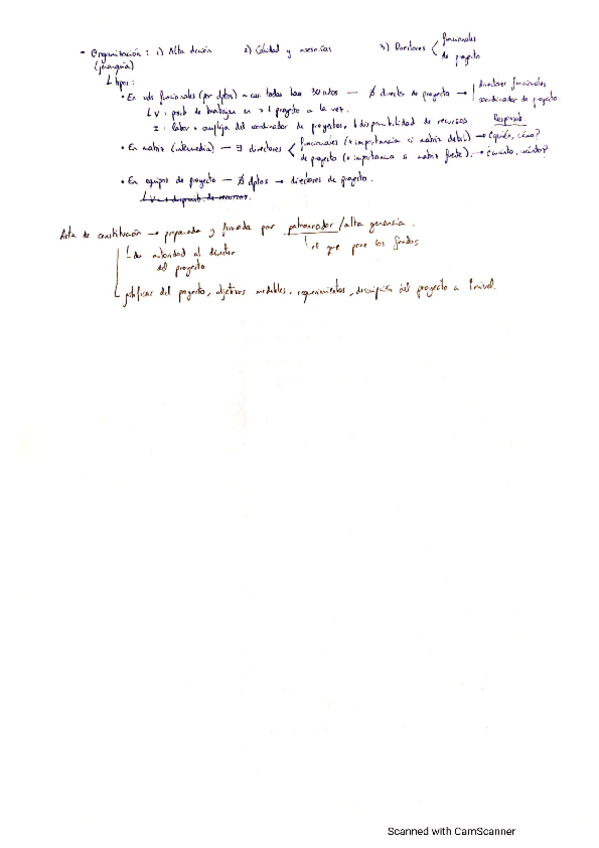 - Organización : 1) Alta dirección 2) Calidad y asesorías 3) Directores < funcionales
de proyecto
(jerarquía)
↳ tipos :
• En uds funcionales (por dptos) → casi todas hace 30 años — ∅ director de proyecto → directores funcionales
coordinador de proyecto
↳ V : posib de trabajar en > 1 proyecto a la vez.
I : labor + compleja del coordinador de proyectos, disponibilidad de recursos
Responsab
• En matriz (intermedia) — ∃ directores < funcionales (+ importancia si matriz débil) → ¿quién, cómo?
de proyecto (+ importancia si matriz fuerte). → ¿cuánto, cuándo?
• En equipos de proyecto — ∅ dptos → directores de proyecto.
Acta de constitución → preparada y firmada por patrocinador / alta gerencia.
↳ da autoridad al director
del proyecto
↳ el que pone los fondos
↳ justificac del proyecto, objetivos medibles, requerimientos, descripción del proyecto a nivel
Scanned with CamScanner